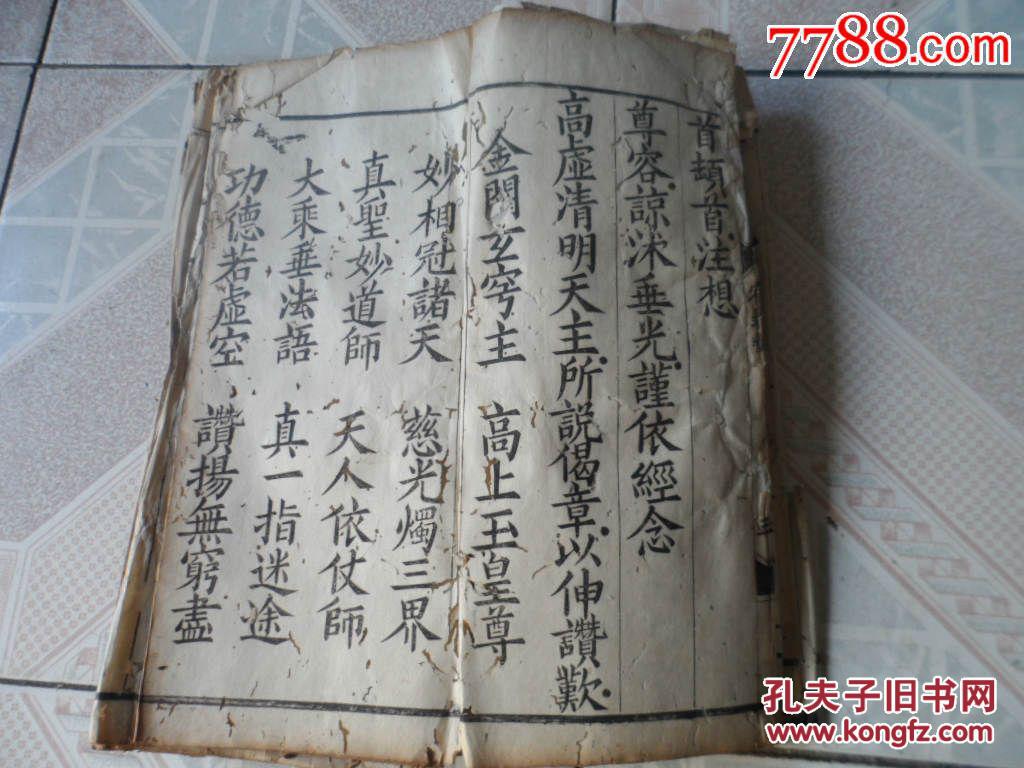 7788.com
首頡首注想
尊容諒沐垂光謹依經念
高虛清明天主所説偈章以伸讚歎
金闕玄穹主 高上玉皇尊
妙相冠諸天 慈光燭三界
真聖妙道師 天人依仗師
大乘垂法語 真一指迷途
功德若虛空 讚揚無窮盡
孔夫子旧书网
www.kongfz.com